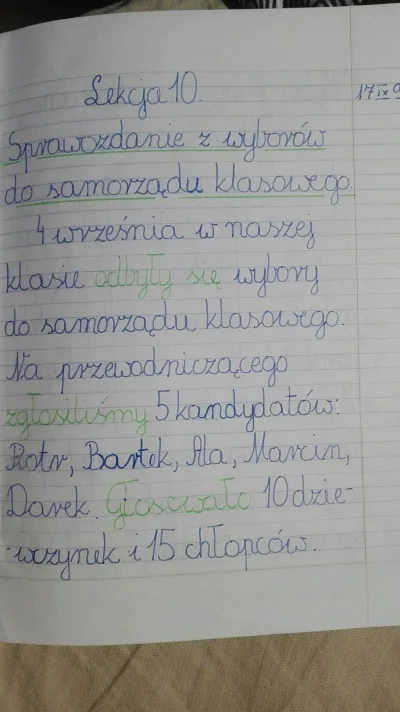 Lekcja 10.
17 IX
Sprawozdanie z wyborów
do samorządu klasowego.
4 września w naszej
klasie odbyły się wybory
do samorządu klasowego.
Na przewodniczącego
zgłosiliśmy 5 kandydatów:
Piotr, Bartek, Ala, Marcin,
Darek. Głosowało 10 dzie-
-wczynek i 15 chłopców.